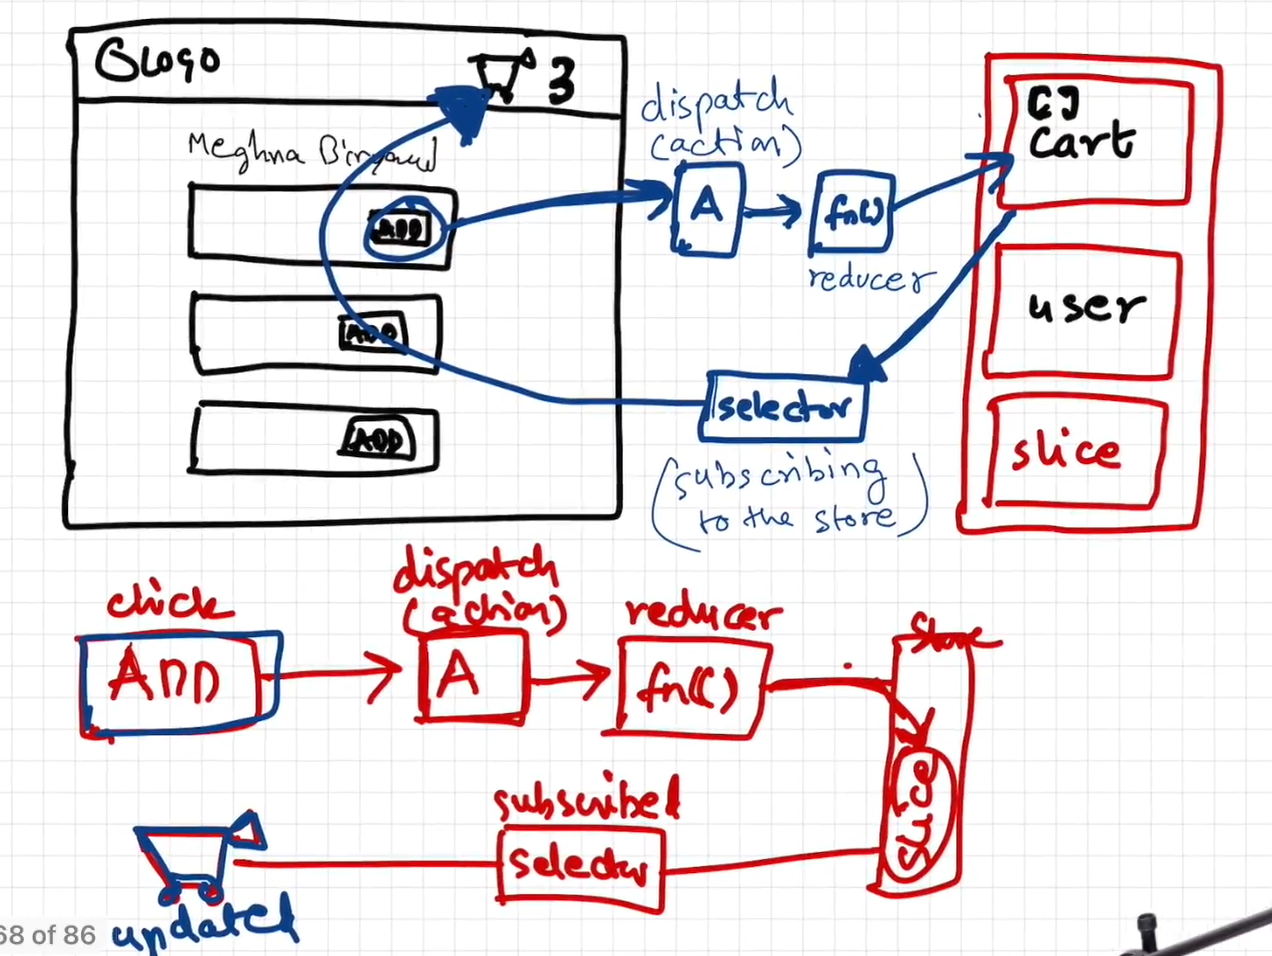 Logo
3
Meghna Biryani
ADD
ADD
ADD
dispatch
(action)
A
fn()
reducer
[]
cart
user
slice
selector
(subscribing
to the store)
click
ADD
dispatch
(action)
A
reducer
fn()
Store
slice
subscribed
selector
updated
68 of 86